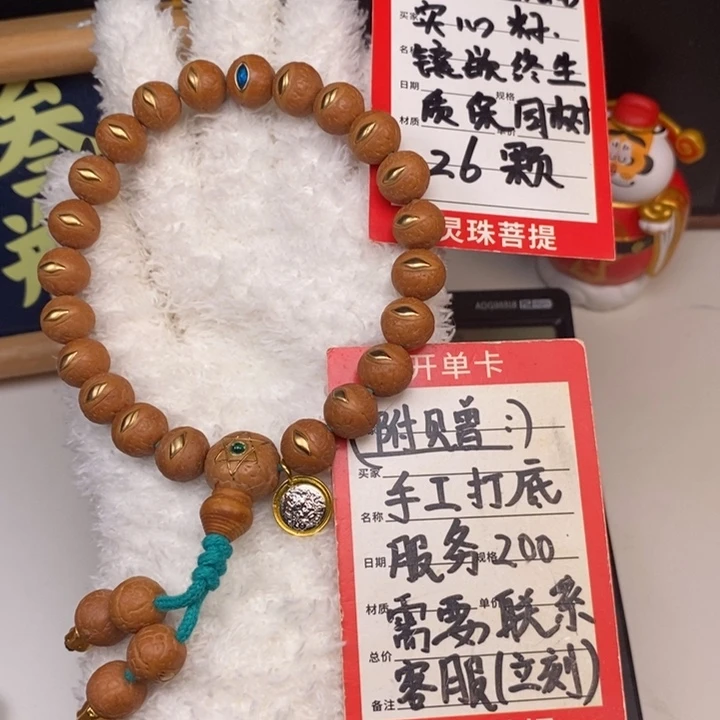 买家 实心籽.
名称 镶嵌终生
日期 规格
材质 质保同树 单价
26颗
灵珠菩提
开单卡
(附贝赠:)
买家
名称 手工打底
日期 服务 规格 200
材质 需要 单价 联系
总价
备注 客服(立刻)